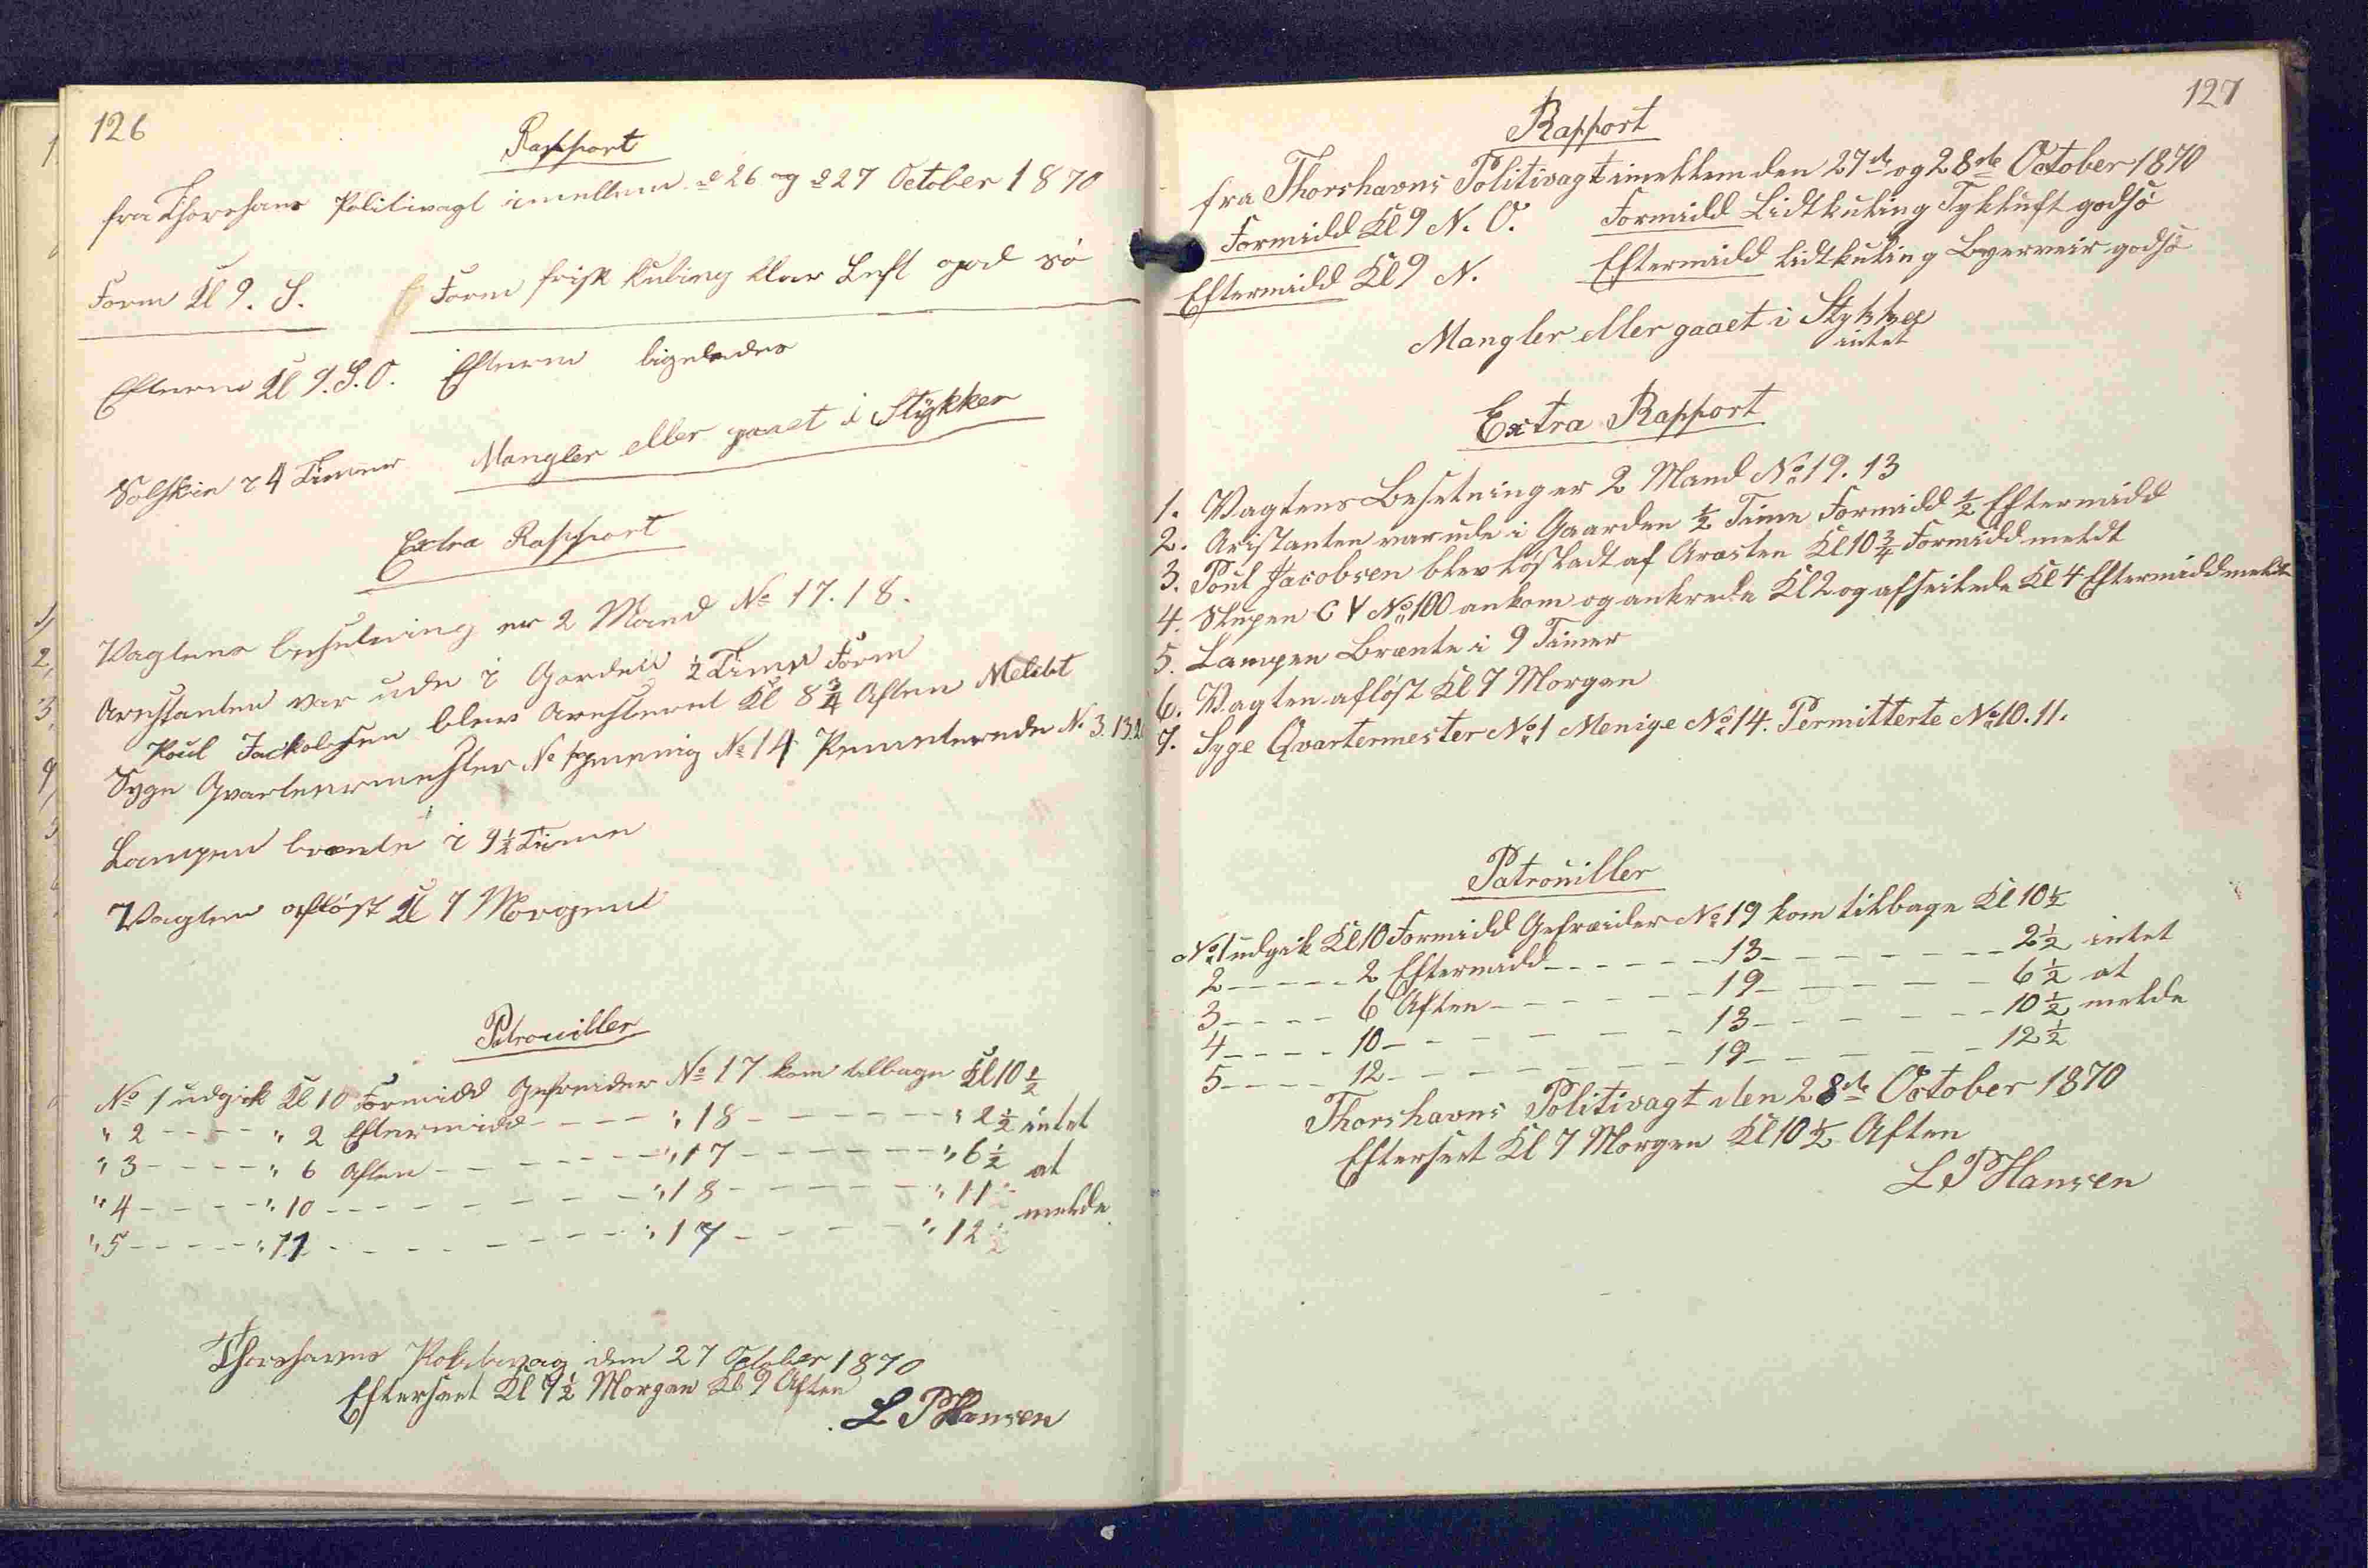 126
Rapport
fra Thorshavns Politivagt imellem d 26 og d 27 October 1870
Form Kl 9. S. Form frisk Kuling klar Luft god sö
Efterm Kl 9. S.O. Efterm ligeledes
Solskin i 4 Timer Mangler eller gaaet i Stykker
Extra Rapport
Vagtens besetning er 2 Mand No 17. 18.
Arrestanten var ude i Gorden ½ Time Form
Poul Jackobsen blev Aresteret Kl 8¾ Aften Meldt
Syge Qvarteermester No 1 menig No 14 Permeterede N. 3. 13.
Lampen brænte i 9½ Time
Vagten aflöst Kl 7 Morgen
Patrouiller
No 1 udgik Kl 10 Formidd Gefreider No 17 kom tilbage Kl 10½
" 2 - - - - " 2 Eftermidd - - - - " 18 - - - - - - " 2½ intet
" 3 - - - - " 6 Aften - - - - - - " 17 - - - - - - " 6½ at
" 4 - - - - " 10 - - - - - - " 18 - - - - - " 11 melde
" 5 - - - - " 11 - - - - - - " 17 - - - - " 12
Thorshavns den 27 October 1870
Efterseet Kl 9½ Morgen Kl 9 Aften
L P Hansen
127
Rapport
fra Thorshavns Politivagt imellem den 27de og 28de October 1870
Formidd Kl 9 N. O. Formidd Lidtkuling Tykluft godsö
Eftermidd Kl 9 N. Eftermidd lidtkuling Byerveir godsö
Mangler eller gaaet i Stykker
intet
Extra Rapport
1. Vagtens Besetning er 2 Mand No 19. 13
2. Aristanten var ude i Gaarden ½ Time Formidd ½ Eftermidd
3. Poul Jacobsen blev lösladt af Aræsten Kl 10¾ Formidd meldt
4. Slupen C V No 100 ankom og ankrede Kl 2 og afseilede Kl 4 Eftermidd meldt
5. Lampen Brænte i 9 Timer
6. Vagten aflöst Kl 7 Morgen
7. Syge Qvartermester No 1 Menige No 14. Permitterte No 10. 11.
Patrouiller
No 1 udgik Kl 10 Formidd Gefræider No 19 kom tilbage Kl 10½
2 - - - - - 2 Eftermidd - - - - - - 13 - - - - - - - 2½ intet
3 - - - - 6 Aften - - - - - - 19 - - - - - - 6½ at
4 - - - - 10 - - - - - - 13 - - - - - - 10½ melde
5 - - - - 12 - - - - - - 19 - - - - - 12½
Thorshavns Politivagt den 28de October 1870
Efterseet Kl 7 Morgen Kl 10½ Aften
L P Hansen